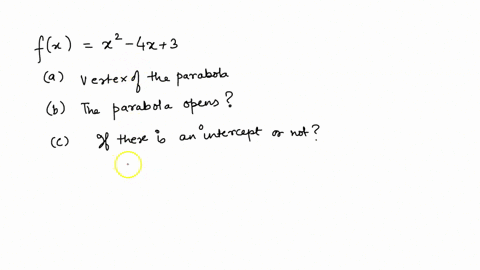 f(x) = x² - 4x + 3
(a) Vertex of the parabola
(b) The parabola opens?
(c) If there is an intercept or not?